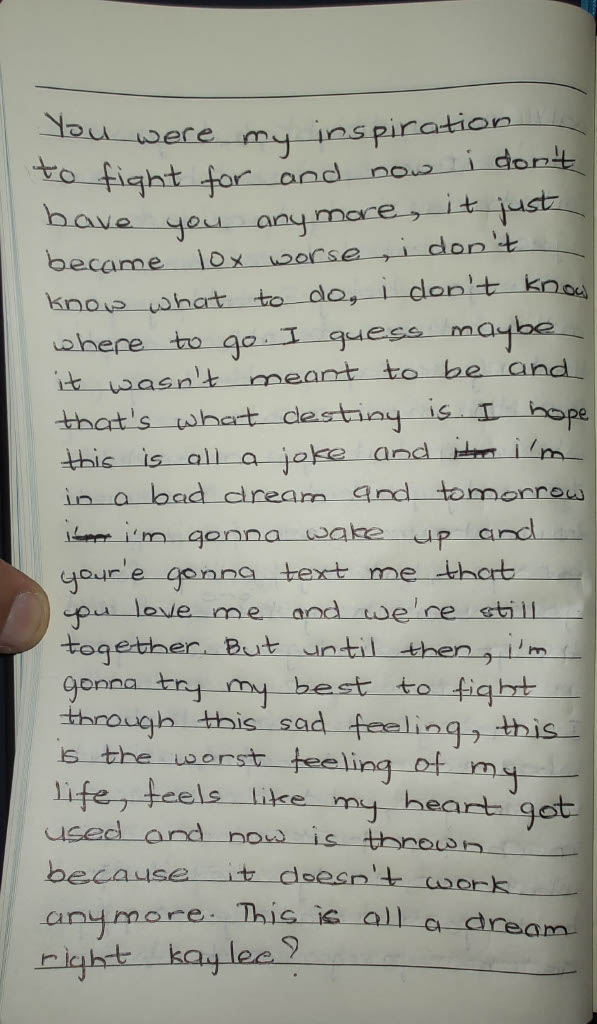 You were my inspiration
to fight for and now i don't
have you anymore, it just
became 10x worse, i don't
know what to do, i don't know
where to go. I guess maybe
it wasn't meant to be and
that's what destiny is. I hope
this is all a joke and i'm
in a bad dream and tomorrow
i'm gonna wake up and
your'e gonna text me that
you love me and we're still
together. But until then, i'm
gonna try my best to fight
through this sad feeling, this
is the worst feeling of my
life, feels like my heart got
used and now is thrown
because it doesn't work
anymore. This is all a dream
right kaylee?